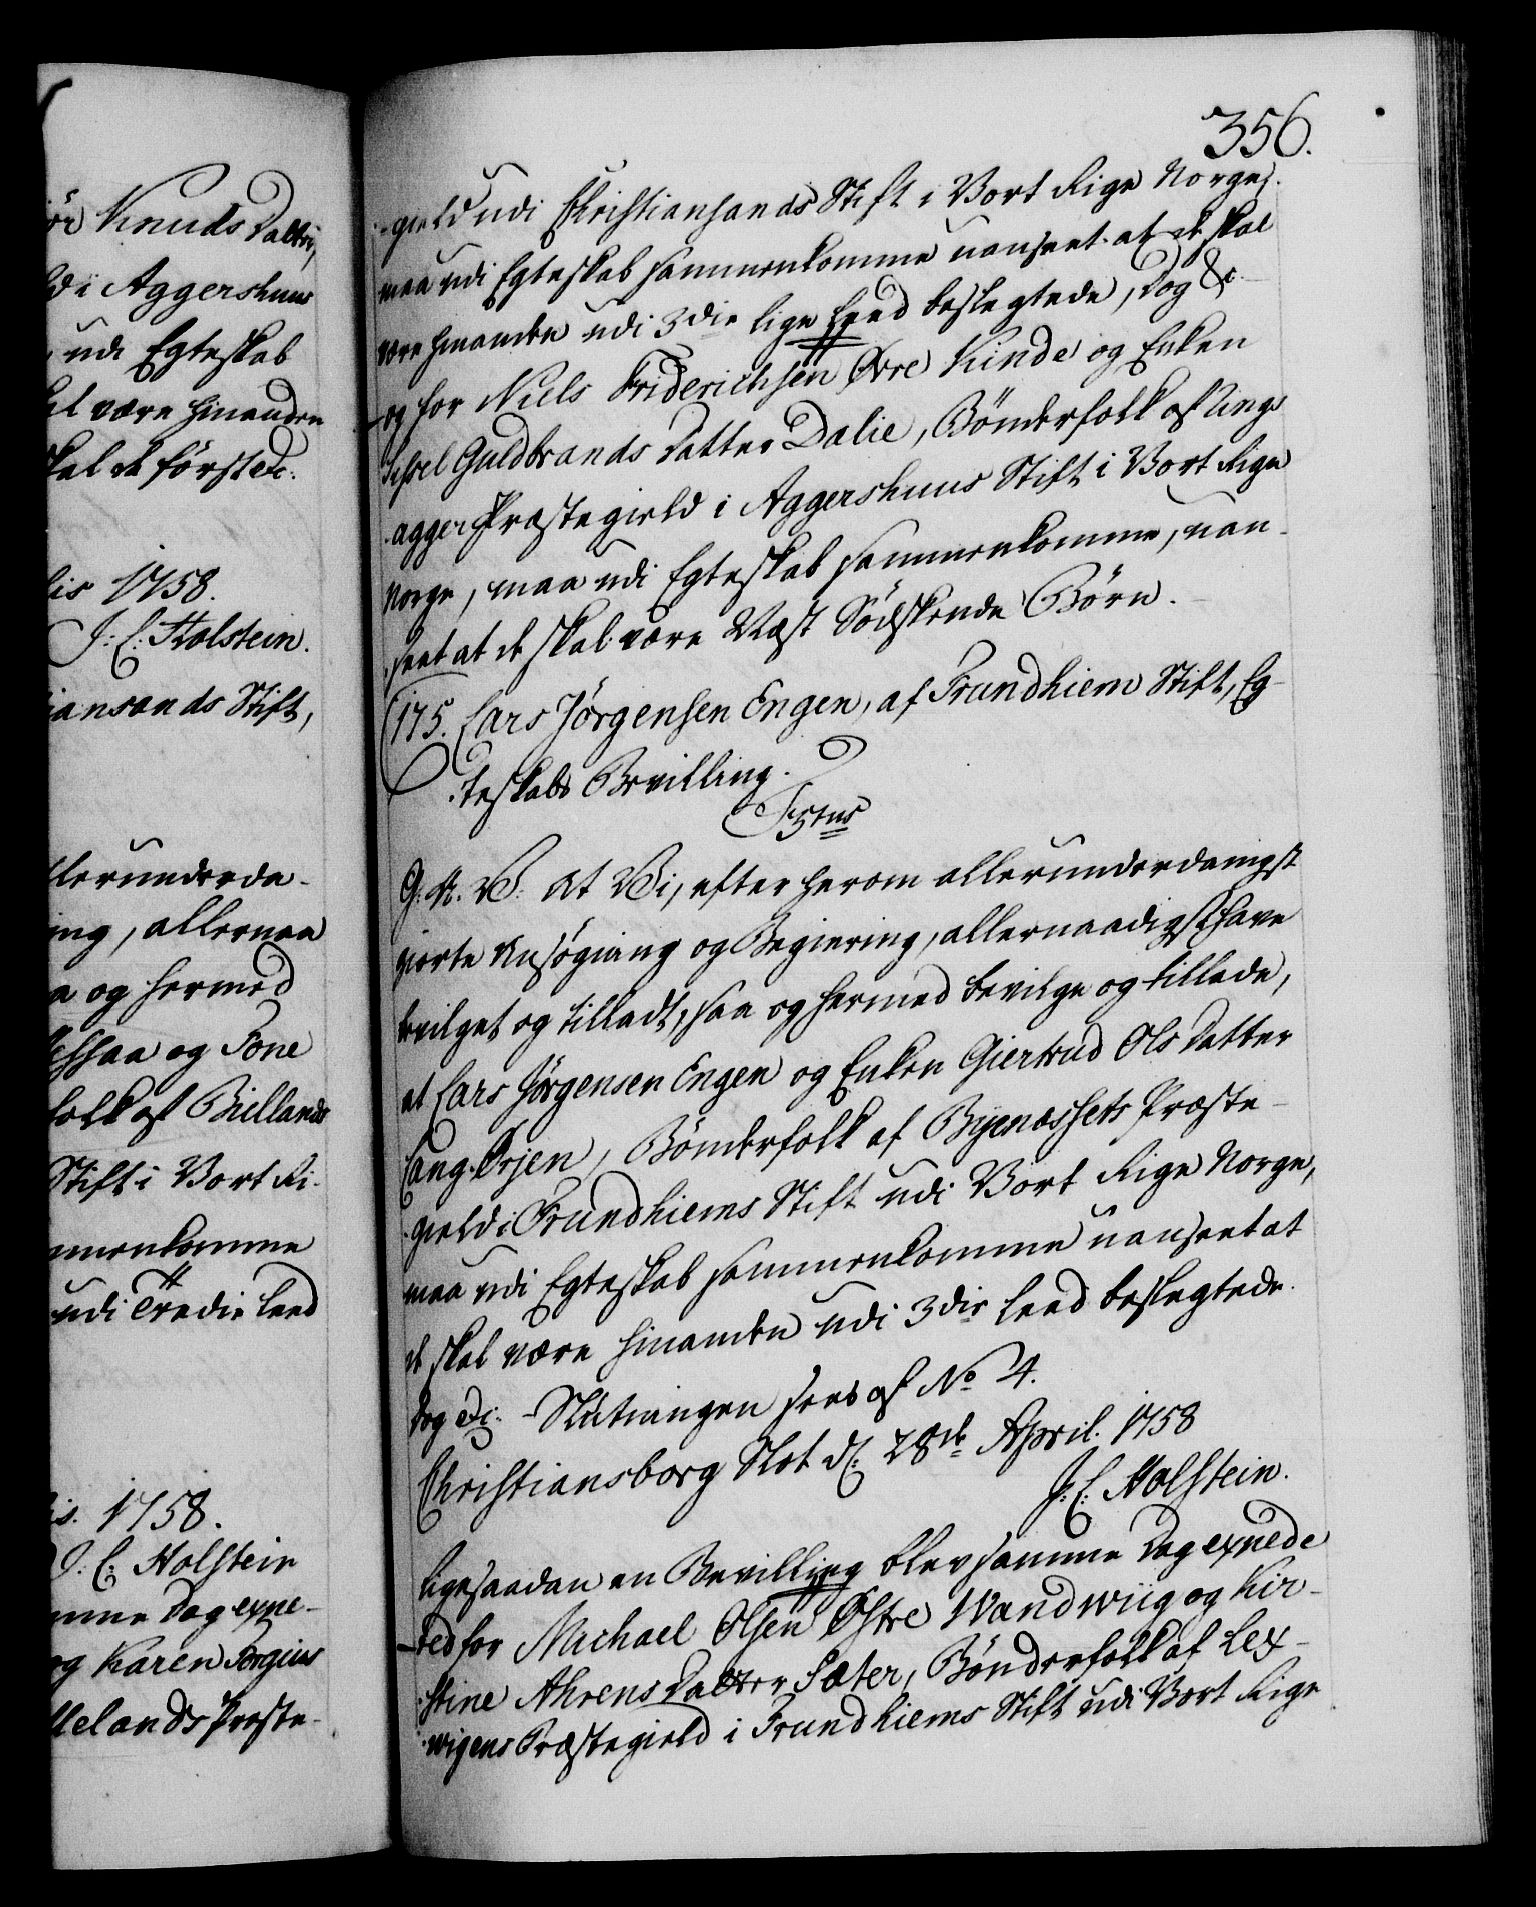 ör Knuds Datter,
d i Aggershuus
udi Egteskab
al være hinanden
skal de först &c.
lis 1758.
J: L: Holstein.
iansands Stift,
llerunderda-
ing, allernaa
a og hermed
og Tone
folk af Biellands
Stift i Vort Ri-
mmenkomme
udi Tredie Leed
is. 1758.
J. L: Holstein
mme Dag expe-
og Karen Torgius
llelands Præste-
356.
-gield udi Christiansands Stift i Vort Rige Norge,
maa udi Egteskab sammenkomme uanseet at de skal
være hinanden udi 3die lige Leed beslegtede, Dog &c
og for Niels Friderichsen Øvre Kinde og Enken
Sissel Guldbrands Datter Dalie, Bönderfolk af Ning-
agger Præstegield i Aggershuus Stift i Vort Rige
Norge, maa udi Egteskab sammenkomme, uan-
seet at de skal være Næst Södskende Börn.
175. Lars Jörgensen Engen, af Trundhiem Stift, Eg-
teskabs Bevilling.
F5tus
G. A. V. At Vi, efter herom allerunderdanigst
giorte Ansögning og Begiering, allernaadigst have
bevilget og tilladt, saa og hermed bevilge og tillade,
at Lars Jörgensen Engen og Enken Giertrud Ols Datter
Lang-Ørjen, Bönderfolk af Byenæssets Præste-
gield i Trundhiems Stift udi Vort Rige Norge,
maa udi Egteskab sammenkomme uanseet at
de skal være hinanden udi 3die Leed beslegtede.
Dog &c: - Slutningen sees af No 4.
Christiansborg Slot d: 28de April. 1758
J: L: Holstein.
Ligesaadan en Bevilling blev samme Dag expede
red for Michael Olsen Østre Wandwiig og Kir-
stine Ahrens Datter Sæter, Bönderfolk af Lex-
wigens Præstegield i Trundhiems Stift udi Vort Rige